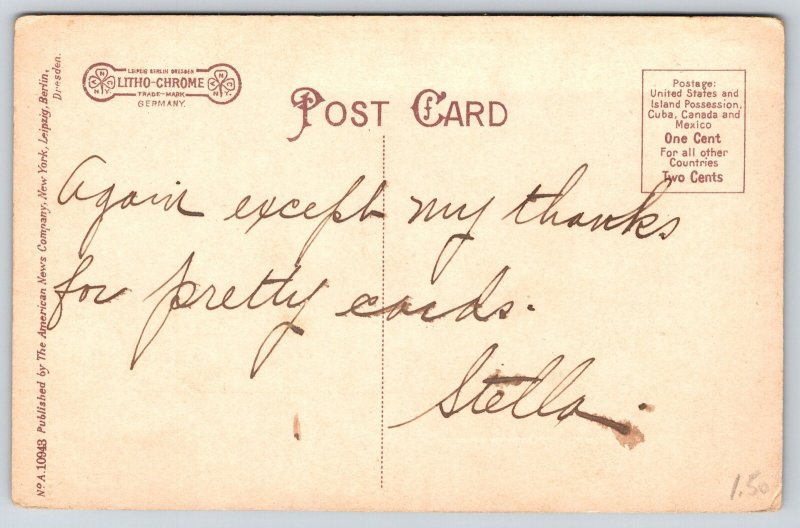 LEIPZIG BERLIN DRESDEN
LITHO-CHROME
TRADE-MARK
GERMANY.
POST CARD
Postage:
United States and
Island Possession,
Cuba, Canada and
Mexico
One Cent
For all other
Countries
Two Cents
Again except my thanks
for pretty cards.
Stella.
No A.10943 Published by The American News Company, New York, Leipzig, Berlin,
Dresden.
1.50